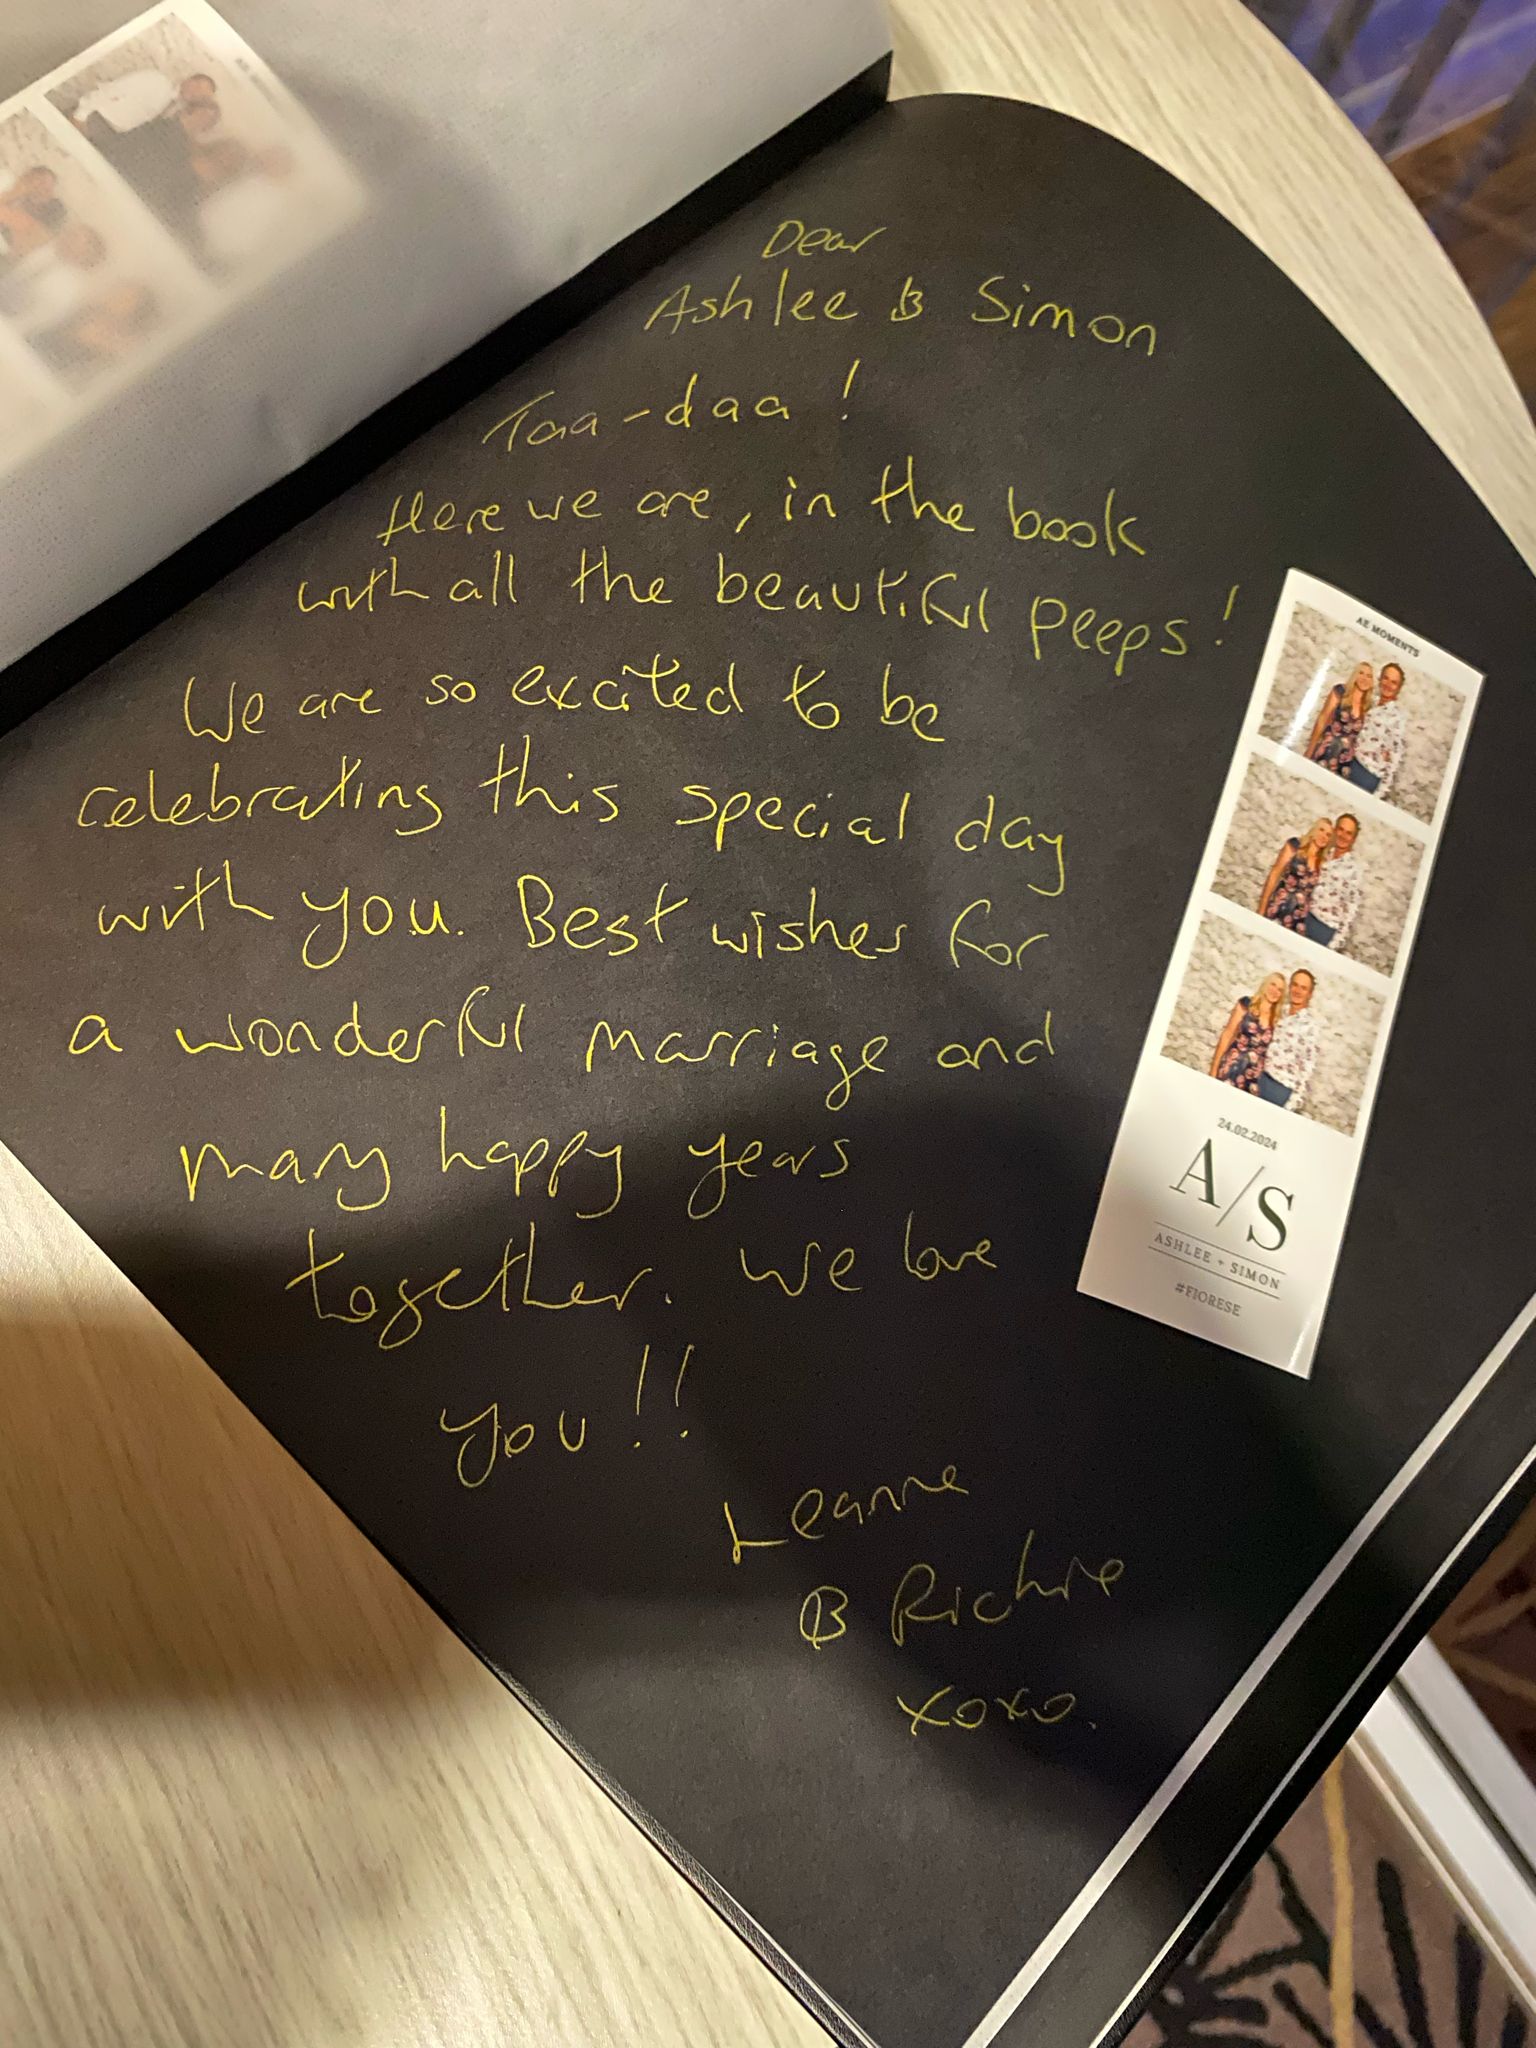 Dear
Ashlee & Simon
Taa-daa!
Here we are, in the book
with all the beautiful peeps!
We are so excited to be
celebrating this special day
with you. Best wishes for
a wonderful marriage and
many happy years
together. We love
you!!
Leanne
& Richie
xoxo.
AE MOMENTS
24.02.2024
A/S
ASHLEE + SIMON
#FIORESE